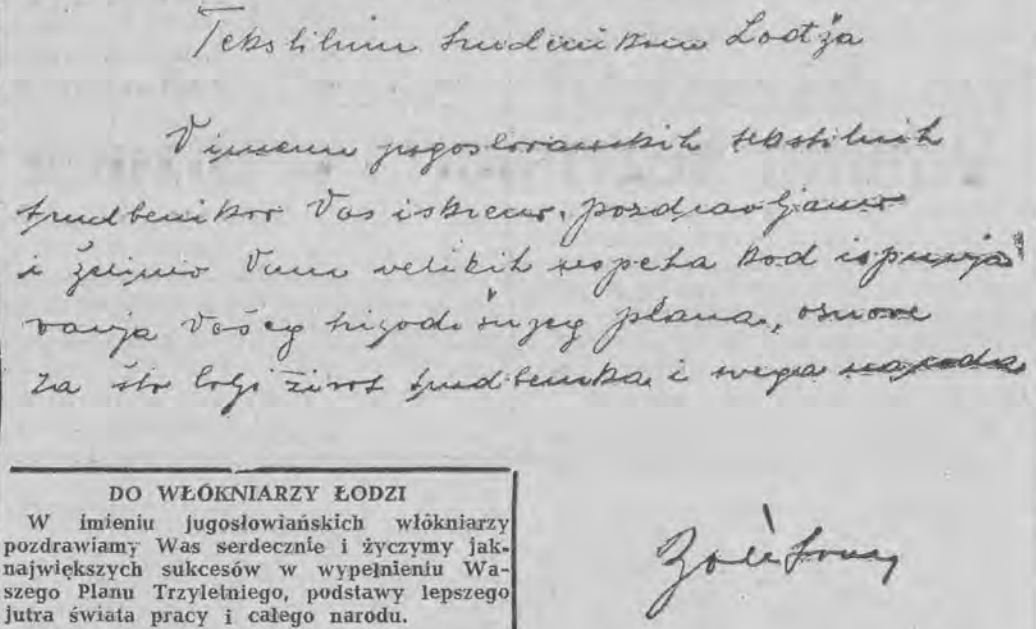 Tekstilnim trudbenikom Lodža
V imenu jugoslovanskih tekstilnih
trudbenikov Vas iskreno pozdravljamo
i želimo Vam velikih uspeha kod ispunja
vanja Vašeg trigodišnjeg plana, osnove
za što bolji život trudbenika i svega naroda
DO WŁÓKNIARZY ŁODZI
W imieniu jugosłowiańskich włókniarzy
pozdrawiamy Was serdecznie i życzymy jak-
największych sukcesów w wypełnieniu Wa-
szego Planu Trzyletniego, podstawy lepszego
jutra świata pracy i całego narodu.